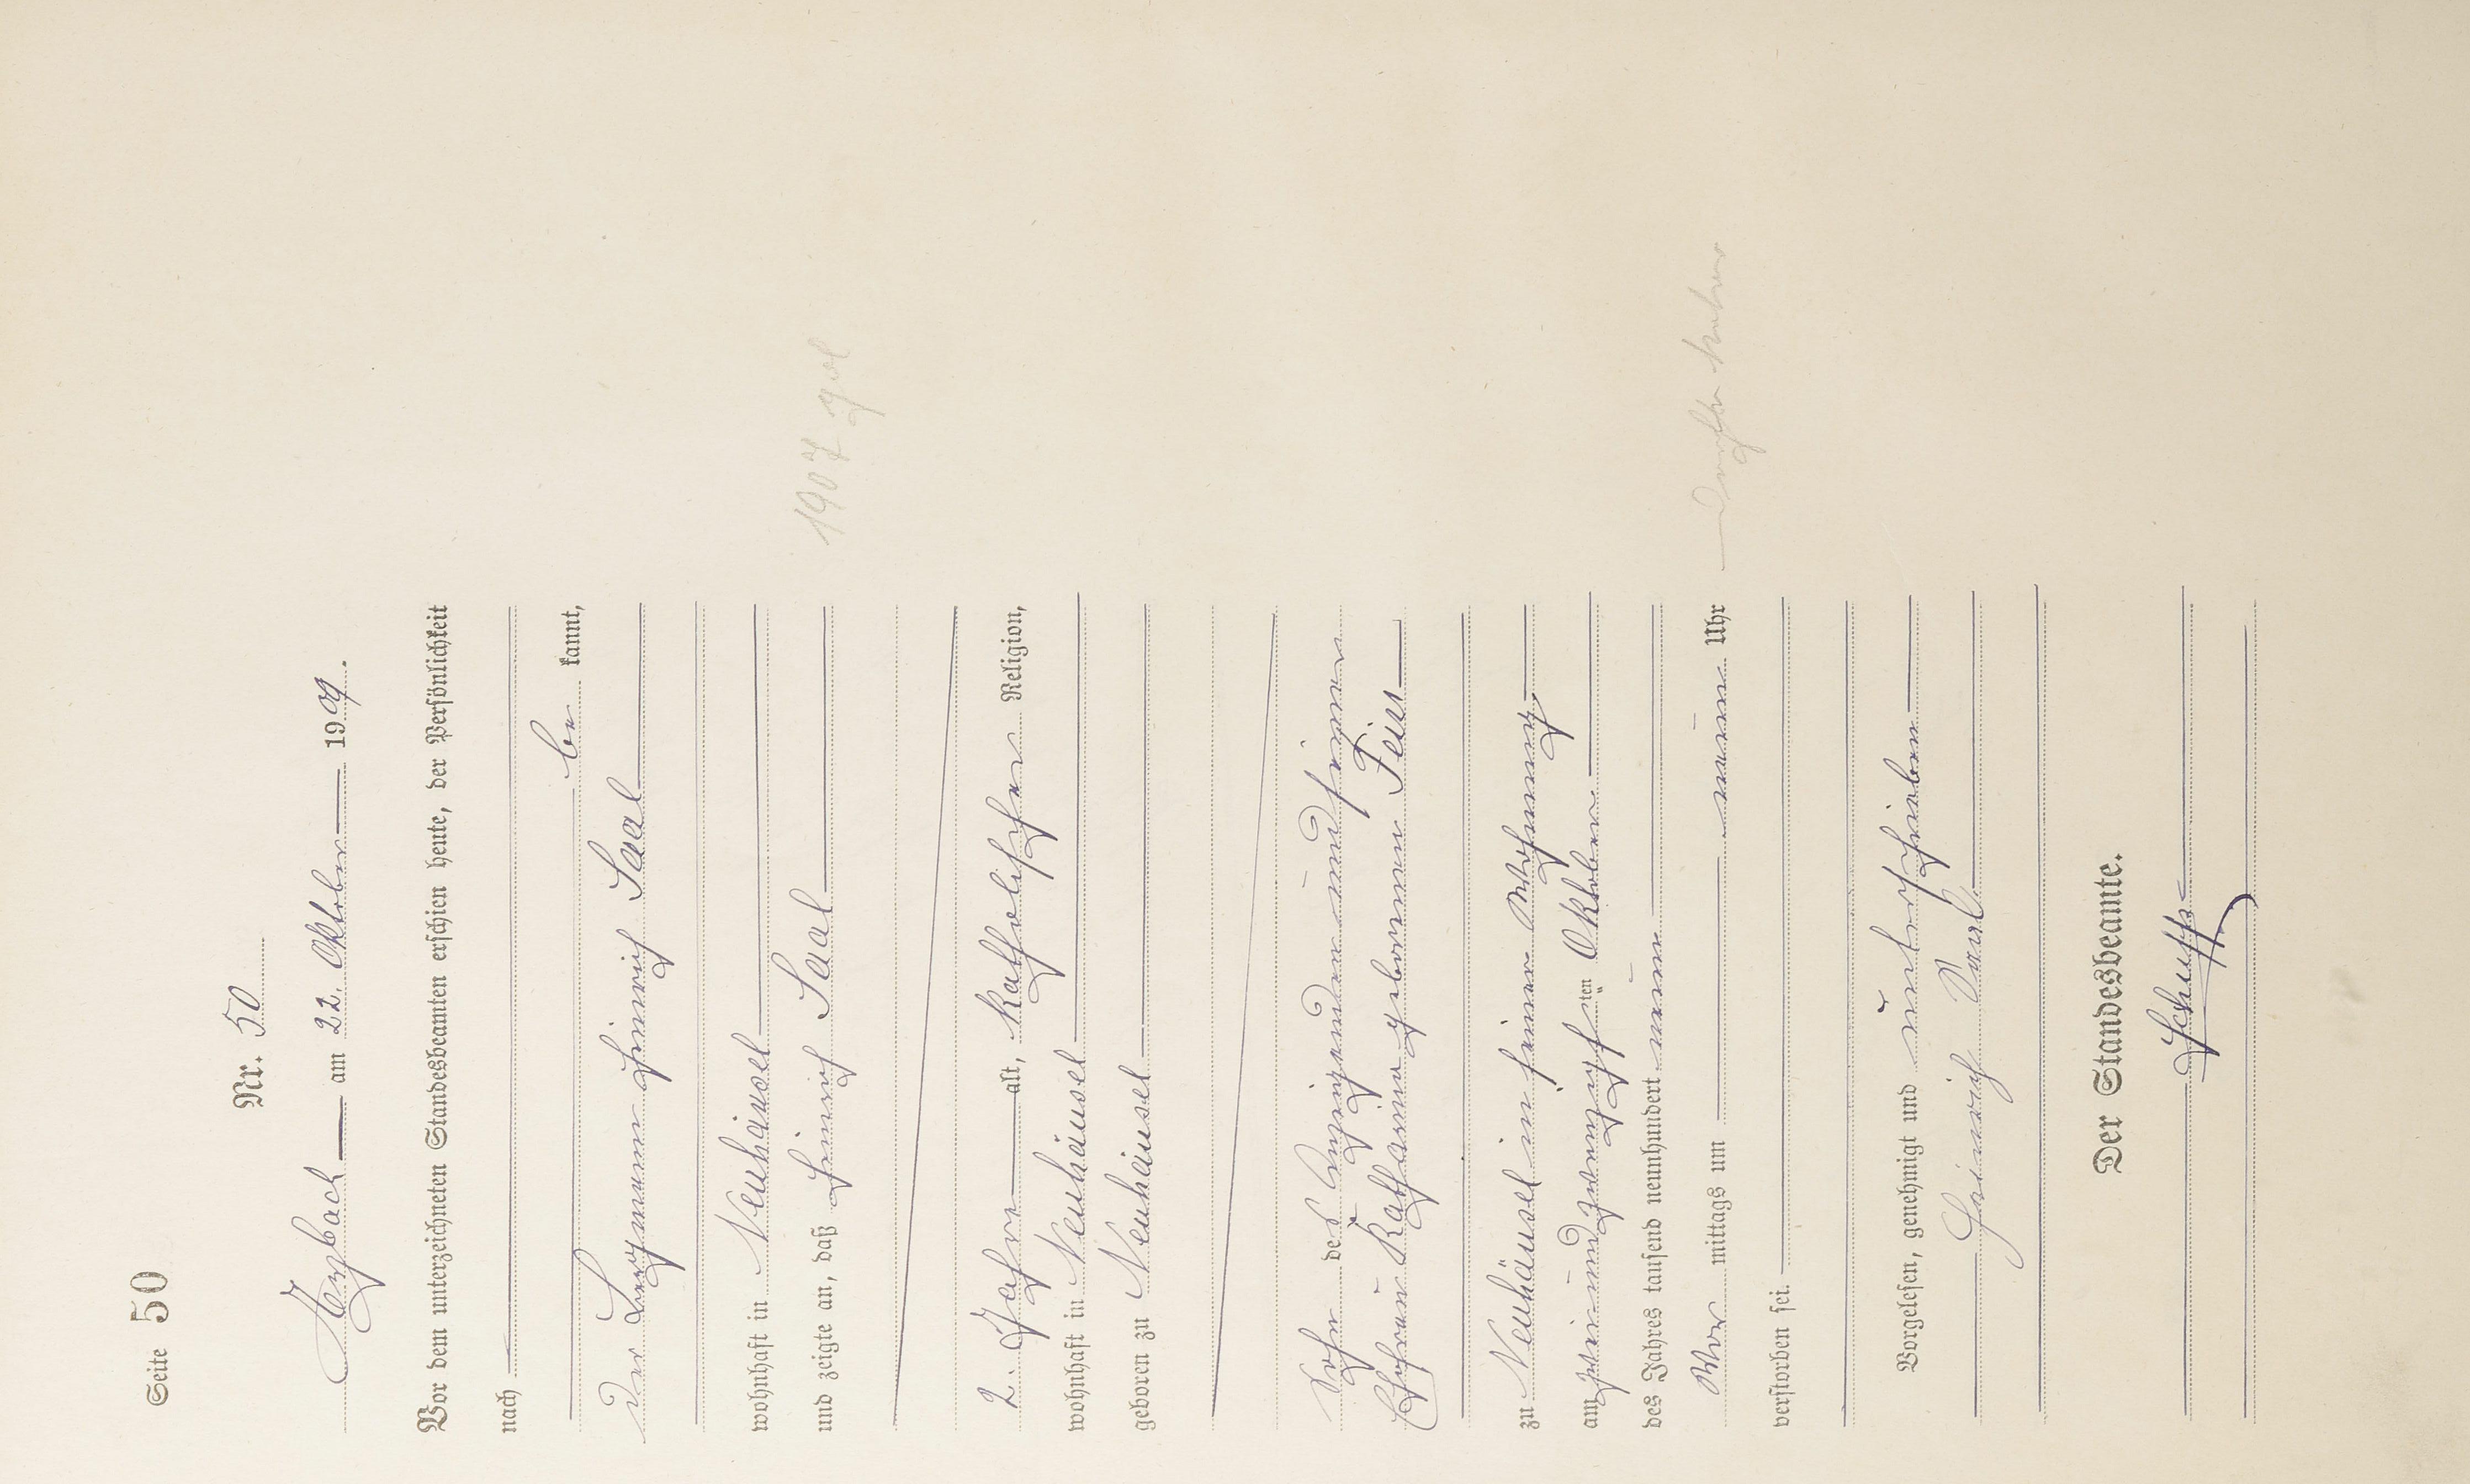 Seite 50
Nr. 50
am 22. Oktober 1909.
Vor dem unterzeichneten Standesbeamten erschien heute, der Persönlichkeit
nach
be kannt,
der Bergmann Heinrich Saal
wohnhaft in Neuhäusel
und zeigte an, daß Heinrich Saal
2 Jahre alt, katholischer Religion,
wohnhaft in Neuhäusel
geboren zu Neuhäusel
Sohn des Anzeigenden und seiner
Ehefrau Katharina geborenen
zu Neuhäusel in seiner Wohnung
am zweiundzwanzigsten Oktober
des Jahres tausend neunhundert neun
Vor mittags um neun Uhr
verstorben sei.
Vorgelesen, genehmigt und unterschrieben
Heinrich Saal
Der Standesbeamte.
1907